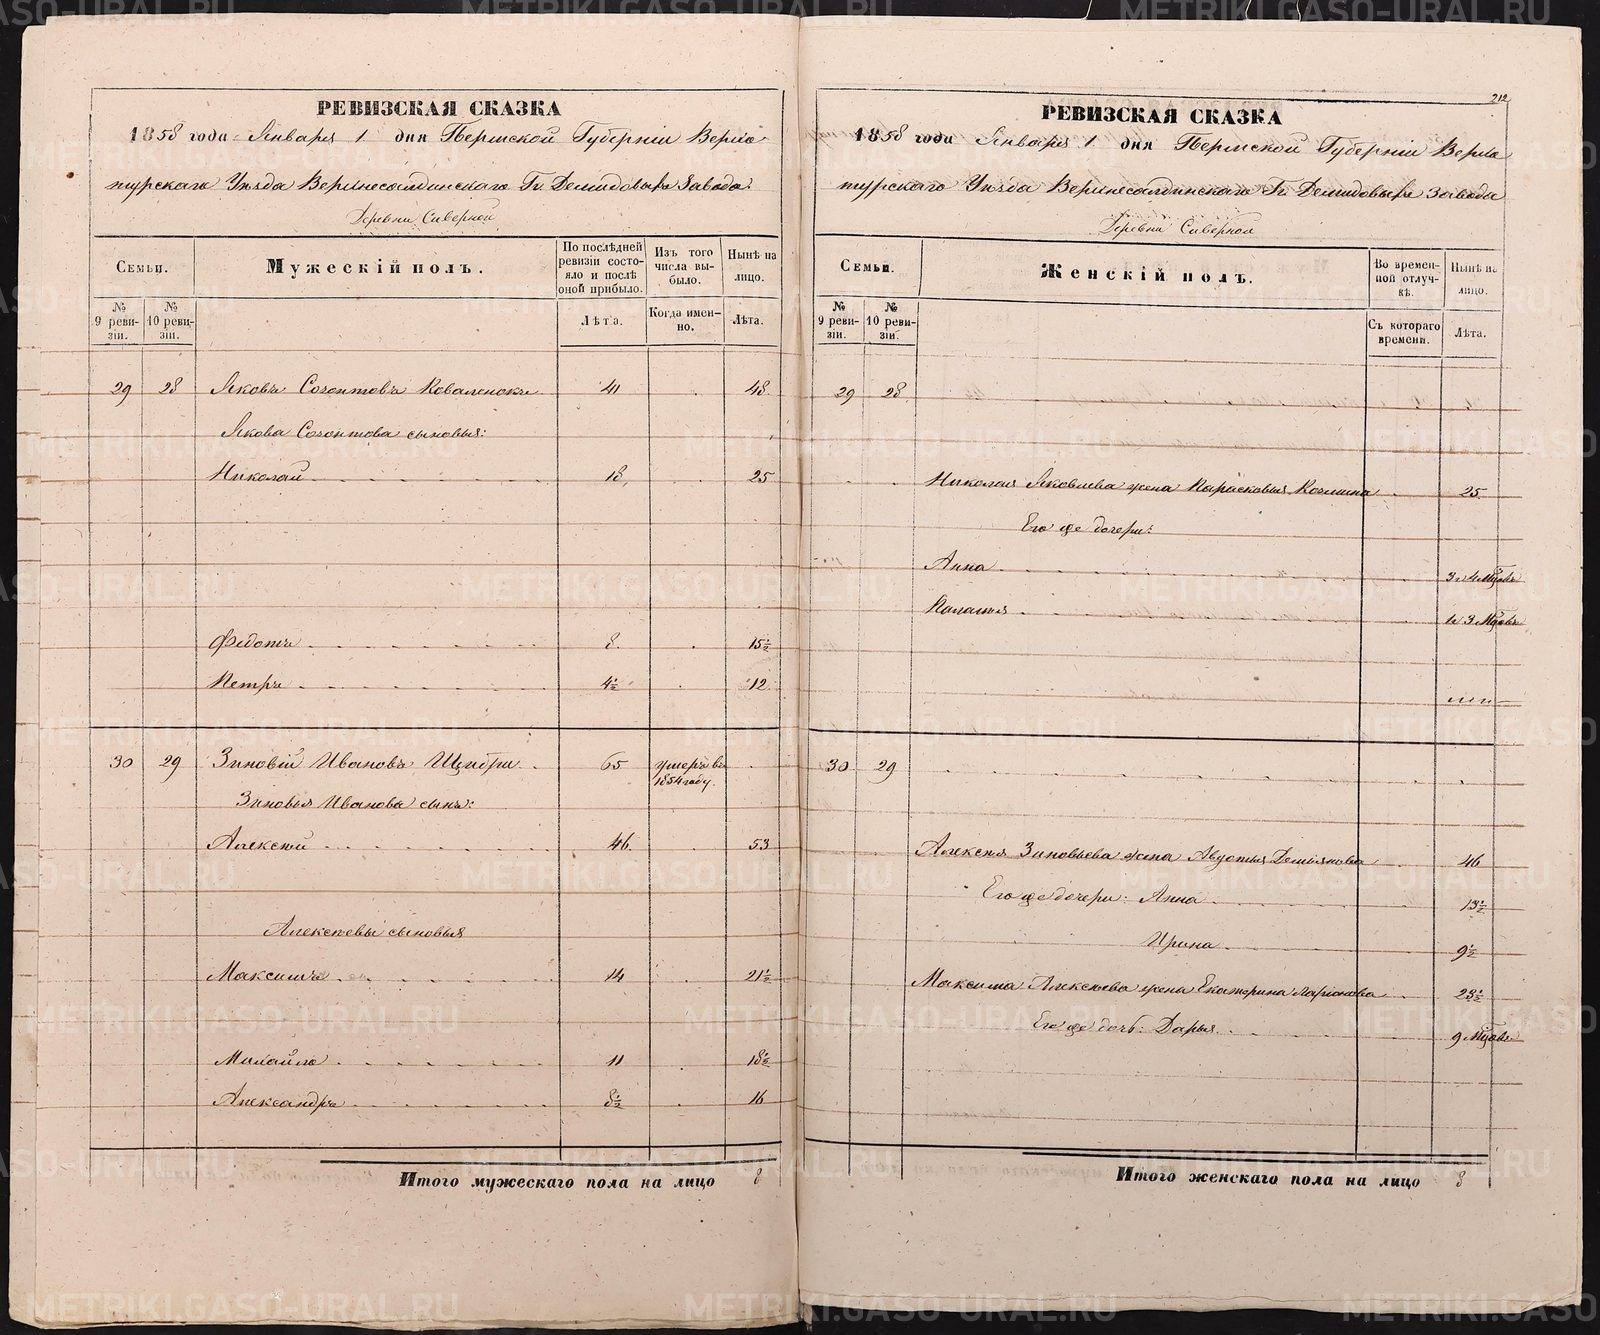 РЕВИЗСКАЯ СКАЗКА
1858 года Января 1 дня Пермской Губерніи Верхо-
турскаго Уѣзда Верхнесалдинскаго Гг. Демидовыхъ Завода.
Деревни Сѣверной
Семьи.
Мужескій полъ.
По послѣдней ревизіи состояло и послѣ оной прибыло.
Изъ того числа выбыло.
Нынѣ на лицо.
№ 9 ревизіи.
№ 10 ревизіи.
Лѣта.
Когда именно.
Лѣта.
29 28 Яковъ Созонтовъ Коваленокъ 41 48
Якова Созонтова сыновья:
Николай 18 25
Федотъ 8 15½
Петръ 4½ 12
30 29 Зиновій Ивановъ 65 умеръ въ 1854 году.
Зиновья Иванова сынъ:
Алексѣй 46 53
Алексѣевы сыновья
Максимъ 14 21½
Михайло 11 18½
Александръ 8½ 16
Итого мужескаго пола на лицо 8
212
РЕВИЗСКАЯ СКАЗКА
1858 года Января 1 дня Пермской Губерніи Верхо
турскаго Уѣзда Верхнесалдинскаго Гг. Демидовыхъ Завода
Деревни Сѣверной
Семьи.
Женскій полъ.
Во временной отлучкѣ.
Нынѣ на лицо.
№ 9 ревизіи.
№ 10 ревизіи.
Съ котораго времени.
Лѣта.
29 28
Николая Яковлева жена Парасковья Козмина 25
Его же дочери:
Анна 3 и 4 мѣсяцевъ
Палагья 1 и 3 мѣсяцевъ
30 29
Алексѣя Зиновьева жена Авдотья Демьянова 46
Его же дочери: Анна 13½
Ирина 9½
Максима Алексѣева жена Екатерина Ларіонова 23½
Его же дочь: Дарья 9 мѣсяцевъ
Итого женскаго пола на лицо 8
METRIKI.GASO-URAL.RU